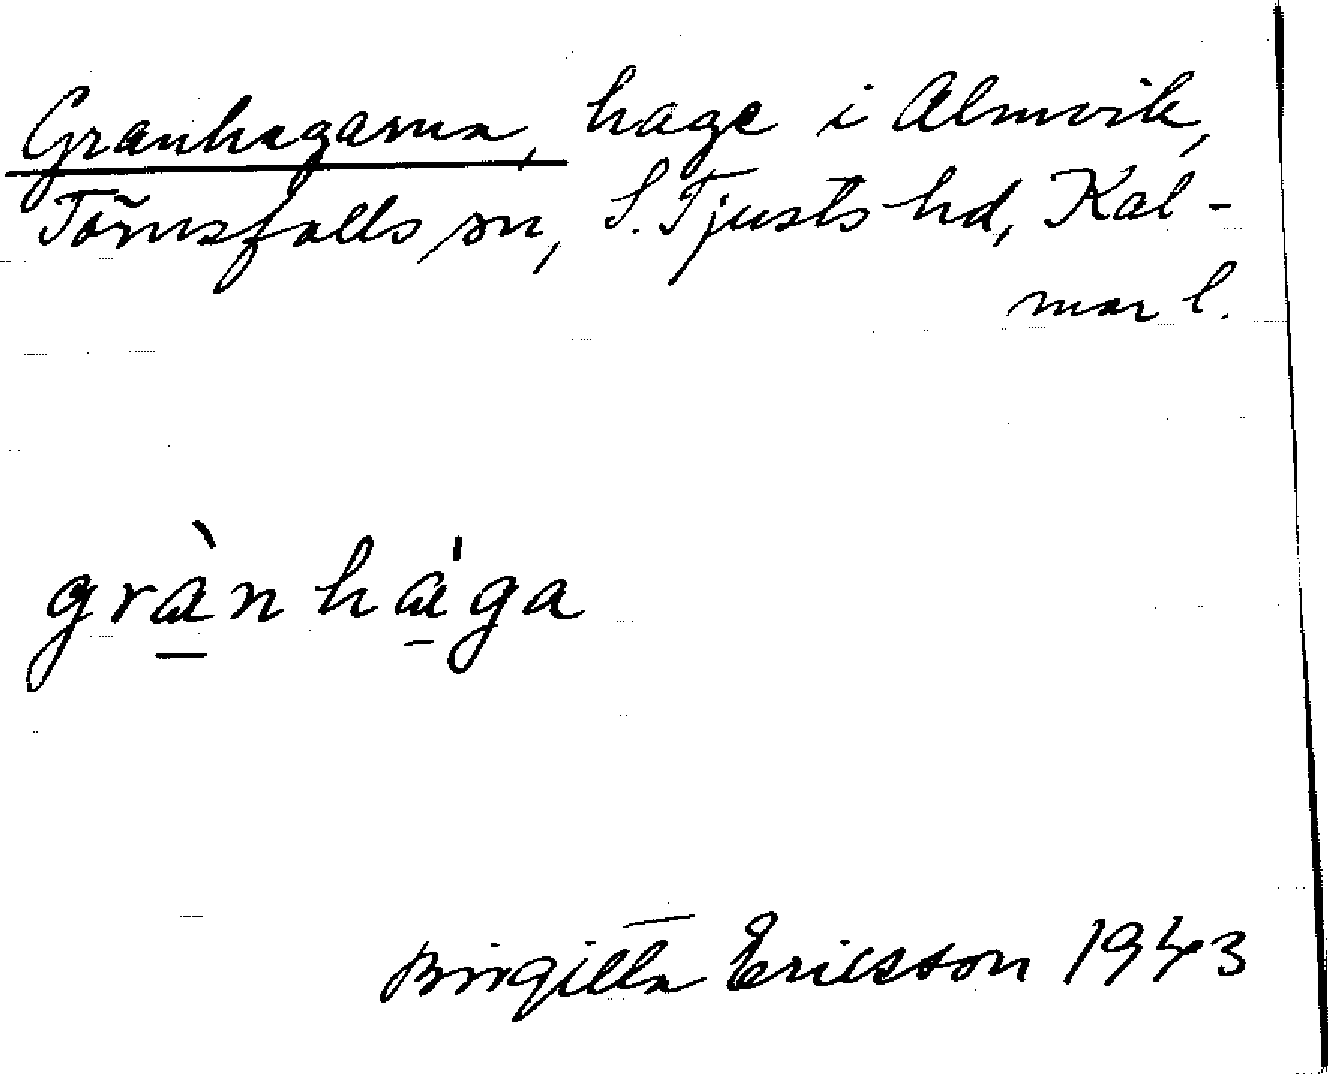 Granhagarna, hage i Almvik,
Törnsfalls sn, S. Tjusts hd, Kal-
mar l.
gràn há̱ga
Birgitta Ericsson 1943